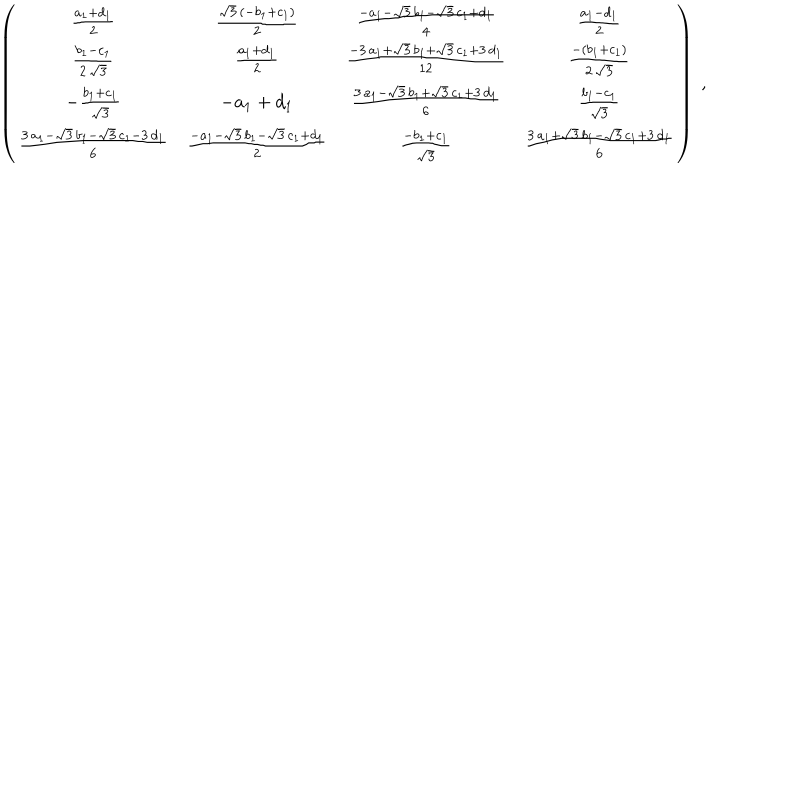 \left( \begin{array}{cccc} \frac{a_1+d_1}{2} & \frac{\sqrt{3}(-b_1+c_1)}{2} & \frac{-a_1-\sqrt{3}b_1-\sqrt{3}c_1+d_1}{4} & \frac{a_1-d_1}{2} \\
\frac{b_1-c_1}{2\sqrt{3}} & \frac{a_1+d_1}{2} & \frac{-3a_1+\sqrt{3}b_1+\sqrt{3}c_1+3d_1}{12} & \frac{-(b_1+c_1)}{2\sqrt{3}} \\
-\frac{b_1+c_1}{\sqrt{3}} & -a_1+d_1 & \frac{3a_1-\sqrt{3}b_1+\sqrt{3}c_1+3d_1}{6} & \frac{b_1-c_1}{\sqrt{3}} \\
\frac{3a_1-\sqrt{3}b_1-\sqrt{3}c_1-3d_1}{6} & \frac{-a_1-\sqrt{3}b_1-\sqrt{3}c_1+d_1}{2} & \frac{-b_1+c_1}{\sqrt{3}} & \frac{3a_1+\sqrt{3}b_1-\sqrt{3}c_1+3d_1}{6} \end{array} \right) ,